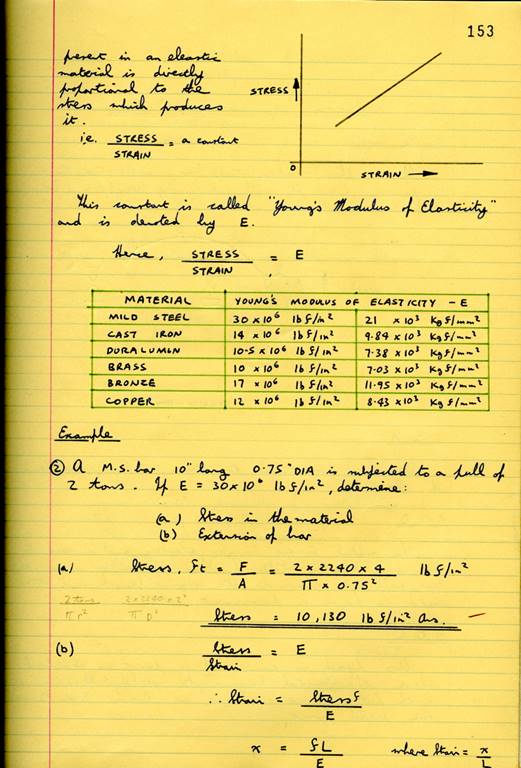 153
present in an eleastic
material is directly
proportional to the
stress which produces
it.
i.e. STRESS / STRAIN = a constant
STRESS
O
STRAIN
This constant is called "Young's Modulus of Elasticity"
and is denoted by E.
Hence, STRESS / STRAIN = E
MATERIAL YOUNG'S MODULUS OF ELASTICITY - E
MILD STEEL 30 x 10⁶ lbf/in² 21 x 10³ Kgf/mm²
CAST IRON 14 x 10⁶ lbf/in² 9.84 x 10³ Kgf/mm²
DURALUMIN 10.5 x 10⁶ lbf/in² 7.38 x 10³ Kgf/mm²
BRASS 10 x 10⁶ lbf/in² 7.03 x 10³ Kgf/mm²
BRONZE 17 x 10⁶ lbf/in² 11.95 x 10³ Kgf/mm²
COPPER 12 x 10⁶ lbf/in² 8.43 x 10³ Kgf/mm²
Example
② A M.S. bar 10" long 0.75" DIA is subjected to a pull of
2 tons. If E = 30 x 10⁶ lbf/in², determine:
(a) Stress in the material
(b) Extension of bar
(a) Stress, ft = F / A = 2 x 2240 x 4 / π x 0.75² lbf/in²
2 tons / πr² 2 x 2240 x 2² / πD²
Stress = 10,130 lbf/in² Ans.
(b) Stress / Strain = E
∴ Strain = Stress f / E
x = fL / E where Strain = x / L